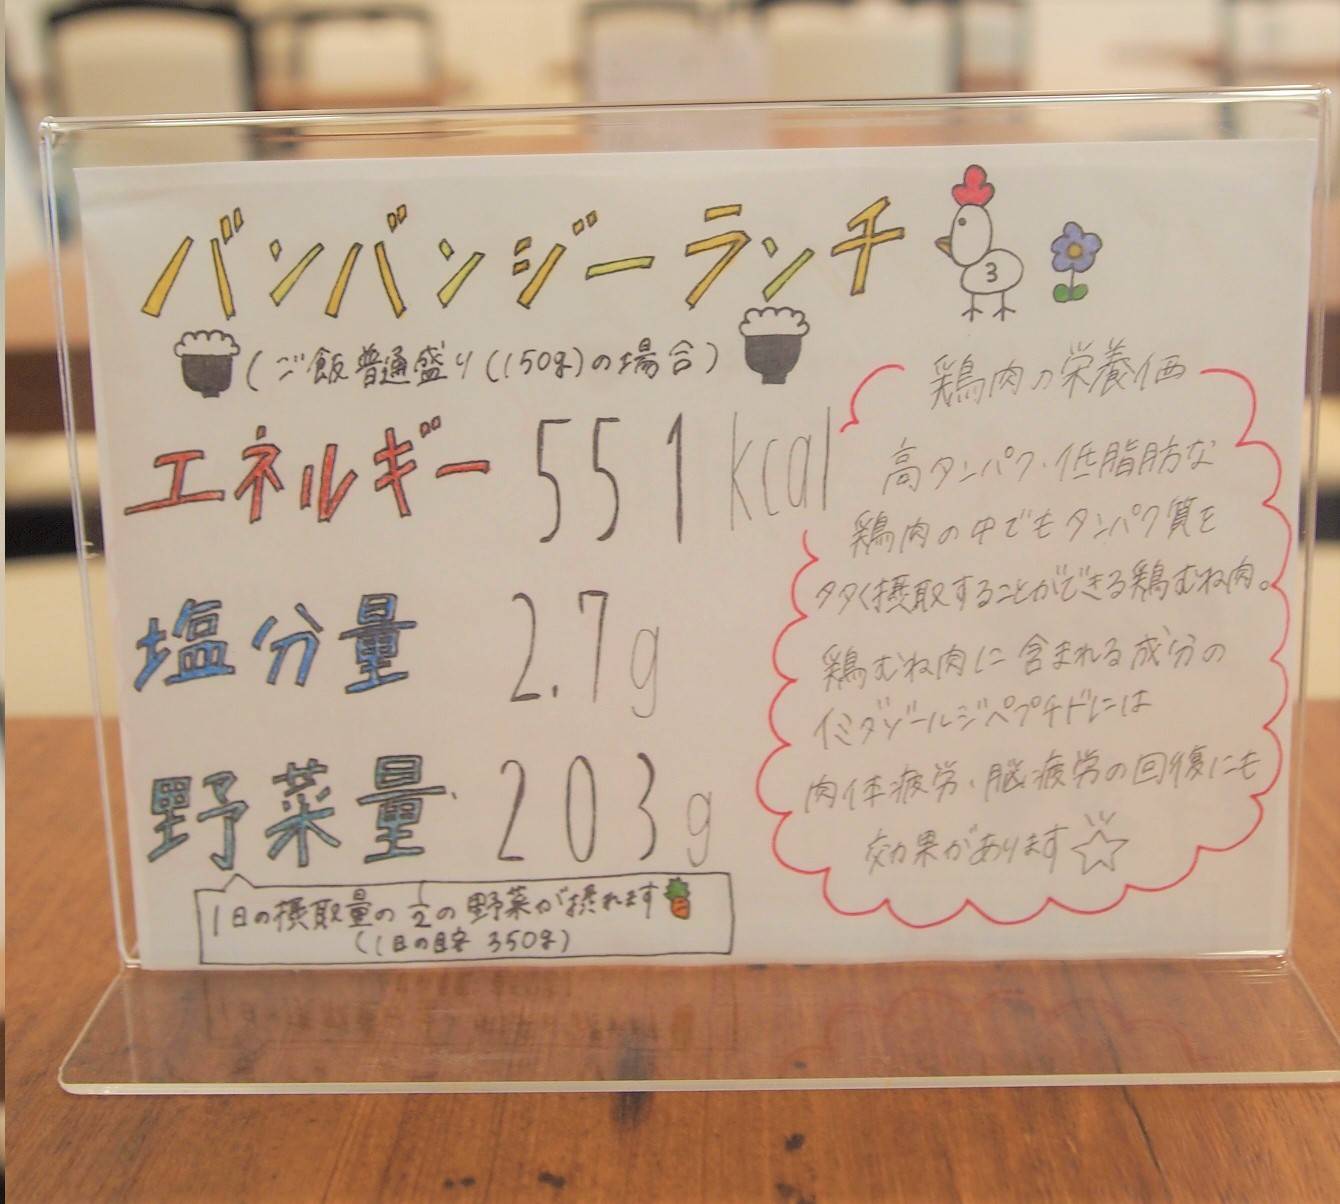 バンバンジーランチ
(ご飯普通盛り(150g)の場合)
エネルギー 551kcal
塩分量 2.7g
野菜量 203g
1日の摂取量の1/2の野菜が摂れます
(1日の目安 350g)
鶏肉の栄養価
高タンパク・低脂肪な
鶏肉の中でもタンパク質を
多く摂取することができる鶏むね肉。
鶏むね肉に含まれる成分の
イミダゾールジペプチドには
肉体疲労、脳疲労の回復にも
効果があります☆